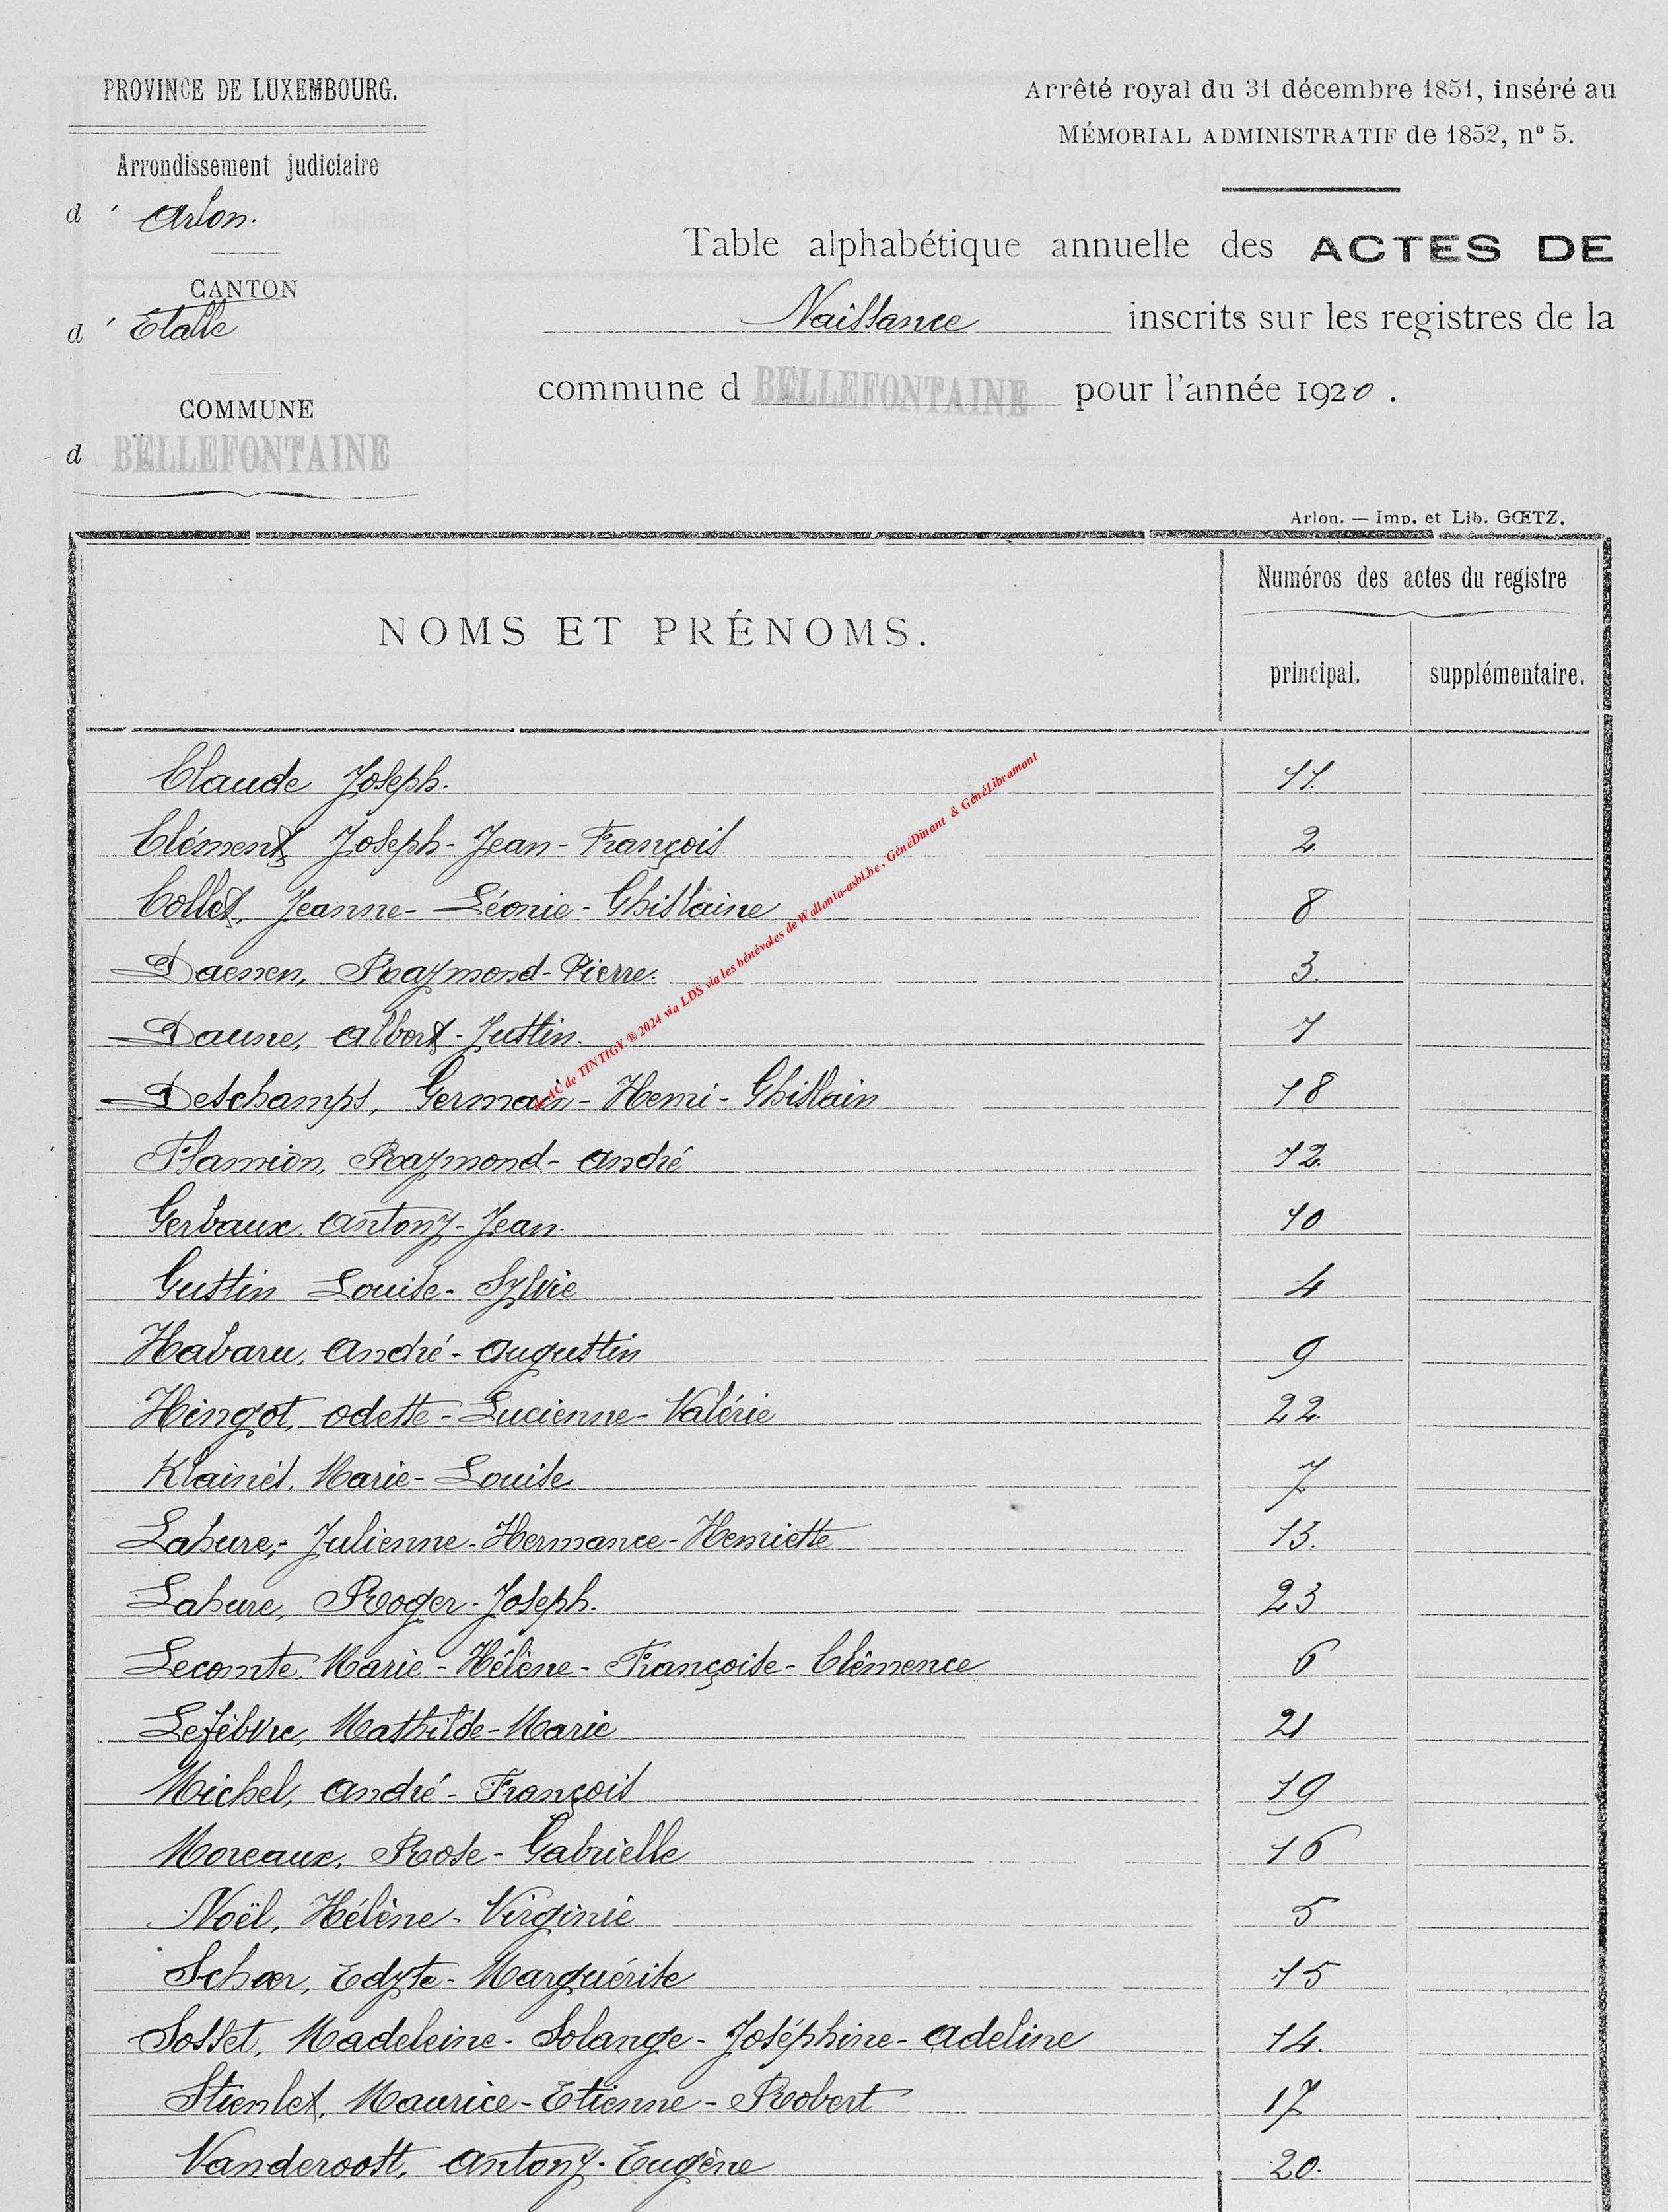 PROVINCE DE LUXEMBOURG.
Arrondissement judiciaire
d' Arlon.
CANTON
d' Etalle
COMMUNE
d BELLEFONTAINE
Arrêté royal du 31 décembre 1851, inséré au
MÉMORIAL ADMINISTRATIF de 1852, nº 5.
Table alphabétique annuelle des ACTES DE
Naissance inscrits sur les registres de la
commune d BELLEFONTAINE pour l'année 1920.
Arlon. — Imp. et Lib. GŒTZ.
NOMS ET PRÉNOMS.
Numéros des actes du registre
principal. supplémentaire.
Claude Joseph. 11.
Clément Joseph-Jean-François 2.
Collet, Jeanne-Léonie-Ghislaine 8
Daenen, Raymond-Pierre. 3.
Daune, Albert-Justin. 1
Deschamps, Germain-Henri-Ghislain 18
Flamion, Raymond-André 12.
Gerbaux, Antony-Jean. 10
Gustin Louise-Sylvie 4
Habaru, André-Augustin 9
Hingot, Odette-Lucienne-Valérie 22.
Klainés, Marie-Louise 7.
Lahure, Julienne-Hermance-Henriette 13.
Lahure, Roger-Joseph. 23
Lecomte, Marie-Hélène-Françoise-Clémence 6
Lefèbvre, Mathilde-Marie 21
Michel, André-François 19
Moreaux, Rose-Gabrielle 16
Noël, Hélène-Virginie 5
Schær, Edyte-Marguérite 15
Sosset, Madeleine-Solange-Joséphine-Adeline 14.
Stienlet, Maurice-Etienne-Robert 17
Vanderoost, Antony-Eugène 20.
AC de TINTIGY ® 2024 via LDS via les bénévoles de Wallonia-asbl.be , GénéDinant & GénéLibramont